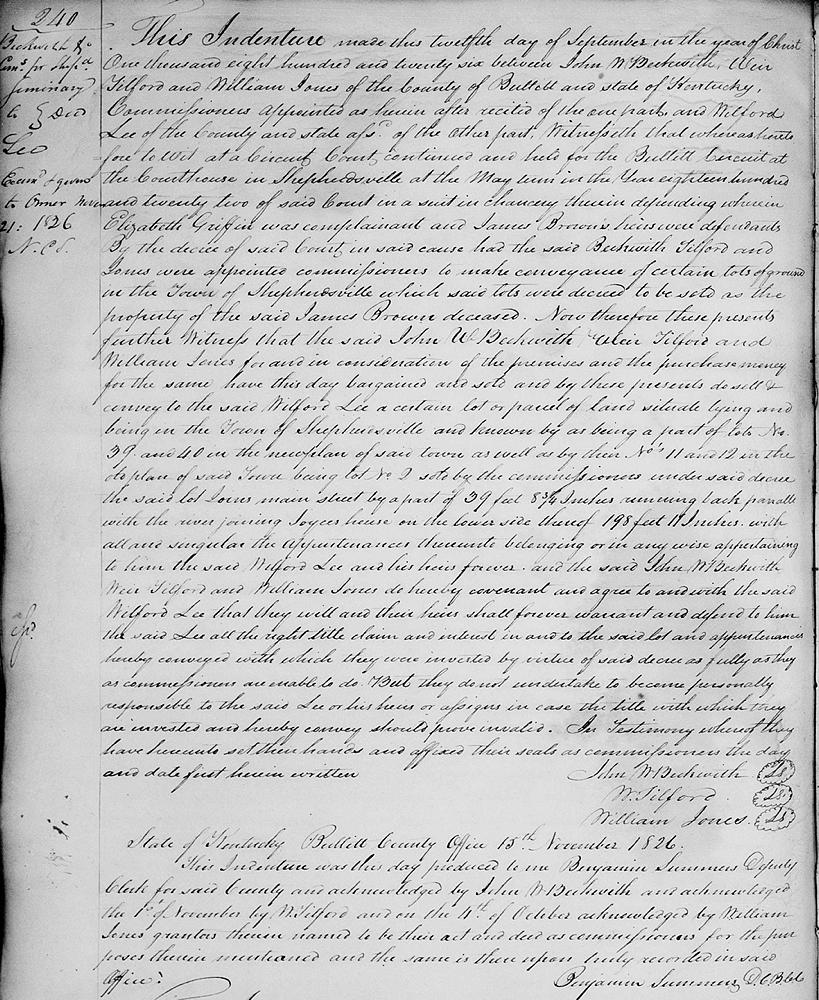 240
Beckwith &c
Coms. for Shepd.
Seminary
to } Deed
Lee
Examd. & given
to Owner Nov
21: 1826
N.C.S.
This Indenture made this twelfth day of September in the year of Christ
One thousand eight hundred and twenty six between John W Beckwith, Weir
Tilford and William Jones of the County of Bullitt and state of Kentucky,
Commissioners appointed as herein after recited of the one part, and Wilford
Lee of the County and state afsd. of the other part, Witnesseth that whereas hereto
fore to wit at a Circuit Court continued and held for the Bullitt Circuit at
the Courthouse in Shepherdsville at the May term in the Year eighteen hundred
and twenty two of said Court in a suit in chancery therein depending wherein
Elizabeth Griffin was complainant and James Brown's heirs were defendants
By the decree of said Court in said cause had the said Beckwith Tilford and
Jones were appointed commissioners to make conveyance of certain lots of ground
in the Town of Shepherdsville which said lots were decreed to be sold as the
property of the said James Brown deceased. Now therefore these presents
further Witness that the said John W Beckwith, Weir Tilford and
William Jones for and in consideration of the premises and the purchase money
for the same have this day bargained and sold and by these presents do sell &
convey to the said Wilford Lee a certain lot or parcel of land situate lying and
being in the Town of Shepherdsville and known by as being a part of lots No.
39 and 40 in the new plan of said town as well as by their No's 11 and 12 in the
old plan of said Town being lot No 2 sold by the commissioners under said decree
the said lot Joins main street by a part of 39 feet 8 3/4 Inches running back parralle
with the river joining Joyces house on the lower side thereof 198 feet 11 Inches. with
all and singular the Appurtenances thereunto belonging or in any wise appertaining
to him the said Wilford Lee and his heirs forever. and the said John W Beckwith
Weir Tilford and William Jones do hereby covenant and agree to and with the said
Wilford Lee that they will and their heirs shall forever warrant and defend to him
the said Lee all the right title claim and interest in and to the said lot and appurtenances
hereby conveyed with which they were invested by virtue of said decree as fully as they
as commissioners are enable to do. But they do not undertake to become personally
responsible to the said Lee or his heirs or assigns in case the title with which they
are invested and hereby convey should prove invalid. In Testimony whereof they
have hereunto set their hands and affixed their seals as commissioners the day
and date first herein written
John W Beckwith Ls.
W. Tilford Ls.
William Jones. Ls.
State of Kentucky Bullitt County Office 15th November 1826.
This Indenture was this day produced to me Benjamin Summers Deputy
Clerk for said County and acknowledged by John W Beckwith and acknowledged
the 1st of November by W. Tilford and on the 4th of October acknowledged by William
Jones grantors therein named to be their act and deed as commissioners for the pur
poses therein mentioned and the same is then upon truly recorded in said
Office.
Benjamin Summers D.C.B.C.C.